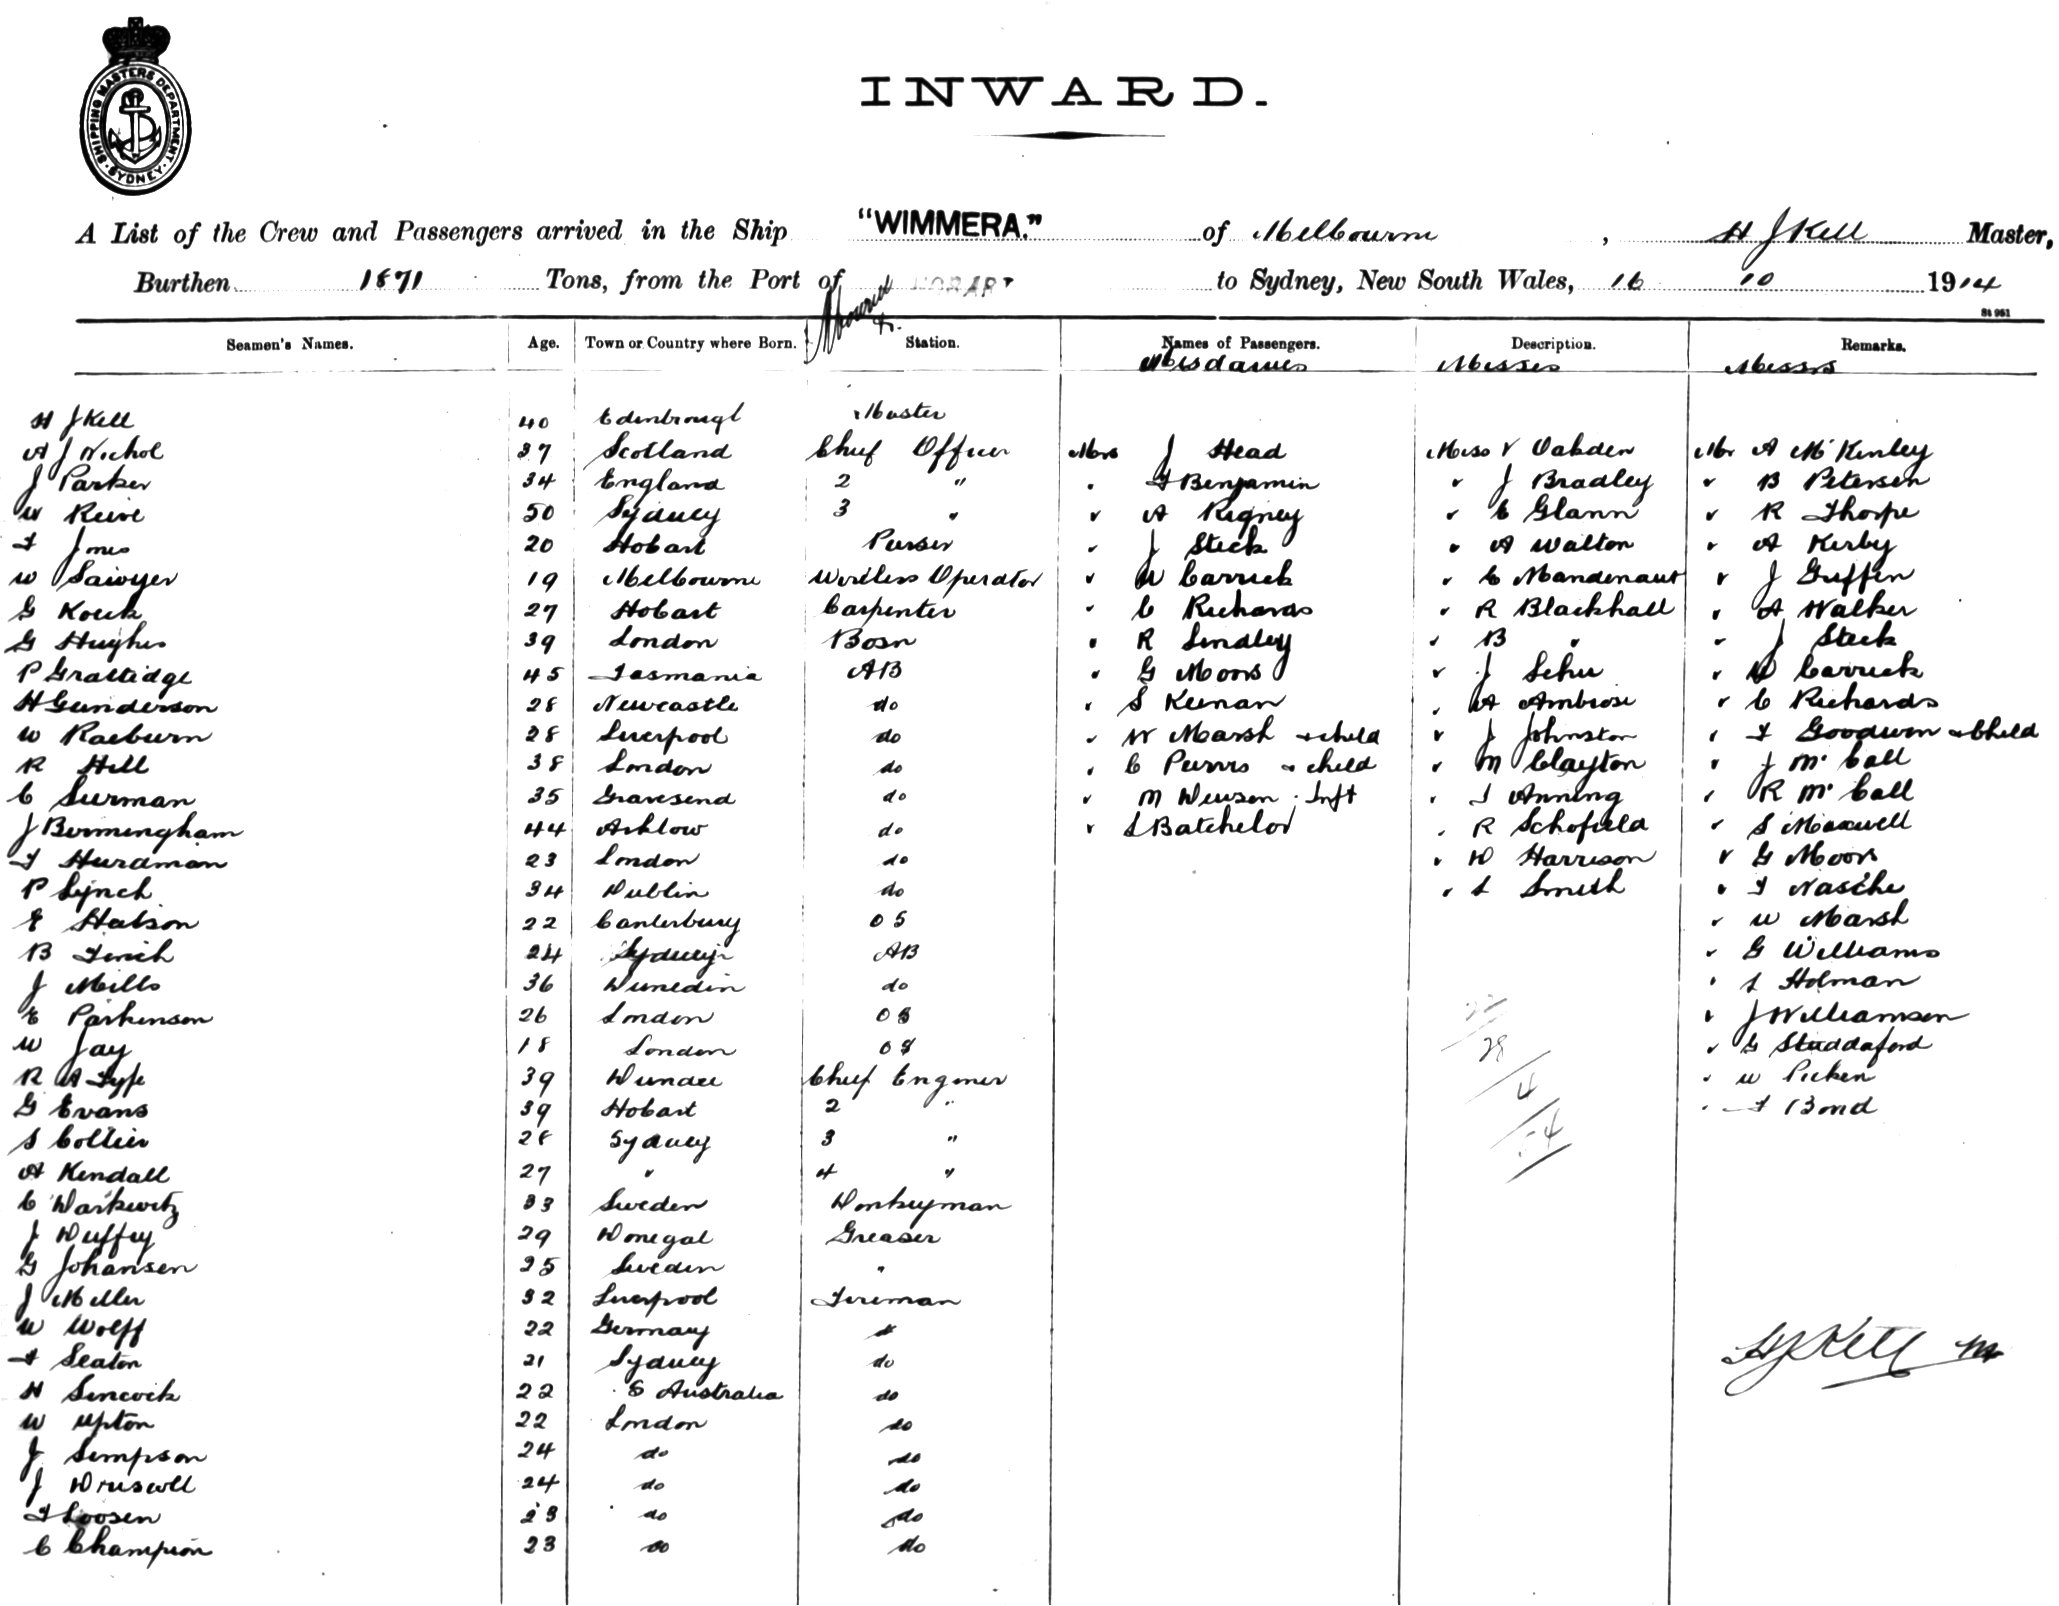 SHIPPING MASTERS DEPARTMENT · SYDNEY ·
INWARD.
A List of the Crew and Passengers arrived in the Ship "WIMMERA." of Melbourne, H J Kell Master,
Burthen 1871 Tons, from the Port of HOBART to Sydney, New South Wales, 16 10 1914
St 951
Seamen's Names. Age. Town or Country where Born. Station. Names of Passengers. Description. Remarks.
Mesdames Misses Messrs
H J Kell 40 Edenbrough Master
A J Nichol 37 Scotland Chief Officer Mrs J Head Miss V Oakden Mr A McKinley
J Parker 34 England 2 " " Benjamin " J Bradley " B Petersen
W 50 Sydney 3 " " A Rigney " E Glann " R Thorpe
F Jones 20 Hobart Purser " J Steck " A Walton " A Kerby
W Sawyer 19 Melbourne Wireless Operator " W Carrick " C " J Griffin
G 27 Hobart Carpenter " C Richards " R Blackhall " A Walker
G Hughes 39 London Bosn " R Lindley " B " " J Steck
P Grattidge 45 Tasmania AB " G Moors " J " W Carrick
H Gunderson 28 Newcastle do " S Keenan " A Ambrose " C Richards
W Raeburn 28 Liverpool do " W Marsh & child " J Johnston " F Goodwin & Child
R Hill 38 London do " C Purvis & child " M Clayton " J McCall
C Surman 35 Gravesend do " M Dewson Inft " I Anning " R McCall
J Bermingham 44 Arklow do " L Batchelor " R Schofield " S Maxwell
F Hurdman 23 London do " D Harrison " G Moors
P Lynch 34 Dublin do " L Smith " F
E Hobson 22 Canterbury OS " W Marsh
B Finch 24 Sydney AB " G Williams
J Mills 36 Dunedin do " L Holman
E Parkinson 26 London OS " J Williamson
W Jay 18 London OS " G Studdaford
R A Fyfe 39 Dundee Chief Enginer " W Picken
G Evans 39 Hobart 2 " " F Bond
S Collier 28 Sydney 3 "
A Kendall 27 " 4 "
C Warkewitz 33 Sweden Donkeyman
J Duffey 29 Donegal Greaser
G Johansen 25 Sweden "
J Miller 32 Liverpool Fireman
W Wolff 22 Germany "
F Seaton 21 Sydney do
H Sincock 22 S Australia do
W Upton 22 London do
J Simpson 24 do do
J Driscoll 24 do do
F Loosen 23 do do
C Champion 23 do do
28
4
4
H J Kell